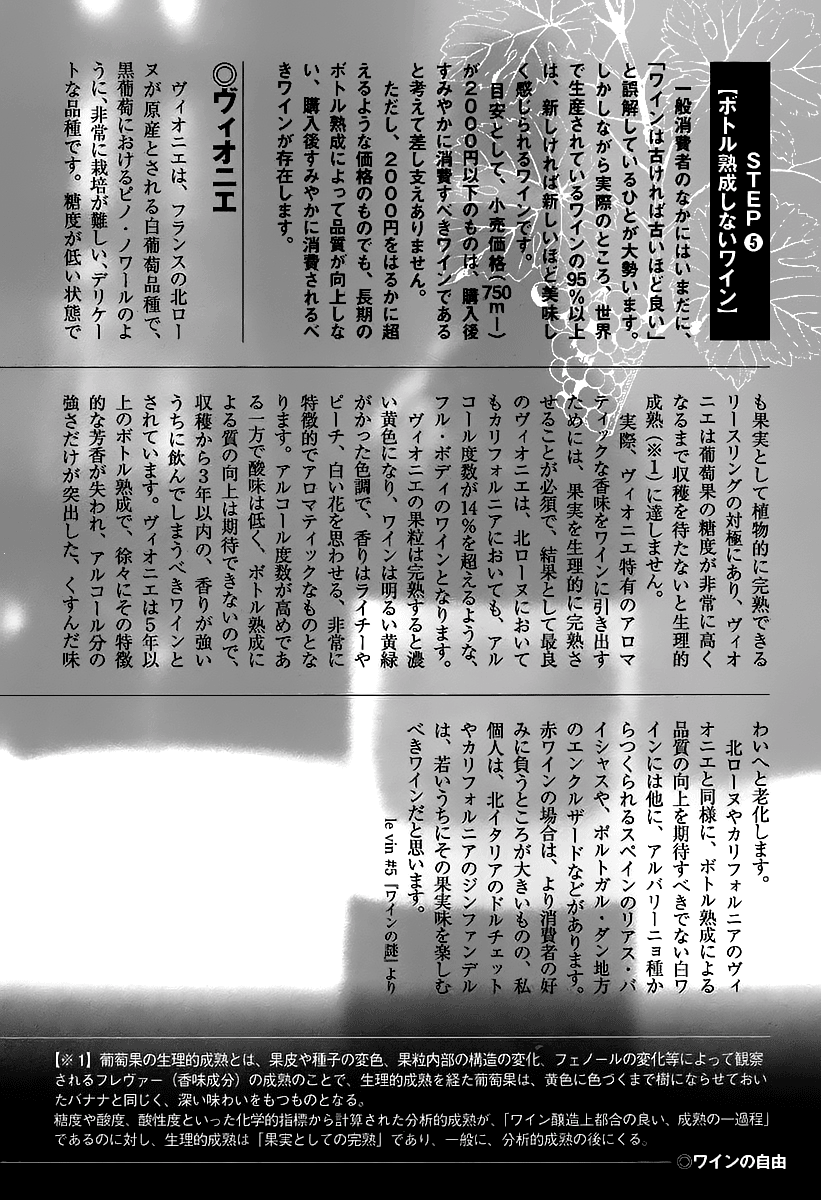 STEP❺
【ボトル熟成しないワイン】
一般消費者のなかにはいまだに、
「ワインは古ければ古いほど良い」
と誤解しているひとが大勢います。
しかしながら実際のところ、世界
で生産されているワインの95％以上
は、新しければ新しいほど美味し
く感じられるワインです。
目安として、小売価格（750ml）
が2000円以下のものは、購入後
すみやかに消費すべきワインである
と考えて差し支えありません。
ただし、2000円をはるかに超
えるような価格のものでも、長期の
ボトル熟成によって品質が向上しな
い、購入後すみやかに消費されるべ
きワインが存在します。
◎ヴィオニエ
ヴィオニエは、フランスの北ロー
ヌが原産とされる白葡萄品種で、
黒葡萄におけるピノ・ノワールのよ
うに、非常に栽培が難しい、デリケー
トな品種です。糖度が低い状態で
も果実として植物的に完熟できる
リースリングの対極にあり、ヴィオ
ニエは葡萄果の糖度が非常に高く
なるまで収穫を待たないと生理的
成熟（※1）に達しません。
実際、ヴィオニエ特有のアロマ
ティックな香味をワインに引き出す
ためには、果実を生理的に完熟さ
せることが必須で、結果として最良
のヴィオニエは、北ローヌにおいて
もカリフォルニアにおいても、アル
コール度数が14％を超えるような、
フル・ボディのワインとなります。
ヴィオニエの果粒は完熟すると濃
い黄色になり、ワインは明るい黄緑
がかった色調で、香りはライチーや
ピーチ、白い花を思わせる、非常に
特徴的でアロマティックなものとな
ります。アルコール度数が高めであ
る一方で酸味は低く、ボトル熟成に
よる質の向上は期待できないので、
収穫から3年以内の、香りが強い
うちに飲んでしまうべきワインと
されています。ヴィオニエは5年以
上のボトル熟成で、徐々にその特徴
的な芳香が失われ、アルコール分の
強さだけが突出した、くすんだ味
わいへと老化します。
北ローヌやカリフォルニアのヴィ
オニエと同様に、ボトル熟成による
品質の向上を期待すべきでない白ワ
インには他に、アルバリーニョ種か
らつくられるスペインのリアス・バ
イシャスや、ポルトガル・ダン地方
のエンクルザードなどがあります。
赤ワインの場合は、より消費者の好
みに負うところが大きいものの、私
個人は、北イタリアのドルチェット
やカリフォルニアのジンファンデル
は、若いうちにその果実味を楽しむ
べきワインだと思います。
le vin #5『ワインの謎』より
【※1】葡萄果の生理的成熟とは、果皮や種子の変色、果粒内部の構造の変化、フェノールの変化等によって観察
されるフレヴァー（香味成分）の成熟のことで、生理的成熟を経た葡萄果は、黄色に色づくまで樹にならせておい
たバナナと同じく、深い味わいをもつものとなる。
糖度や酸度、酸性度といった化学的指標から計算された分析的成熟が、「ワイン醸造上都合の良い、成熟の一過程」
であるのに対し、生理的成熟は「果実としての完熟」であり、一般に、分析的成熟の後にくる。
◎ワインの自由